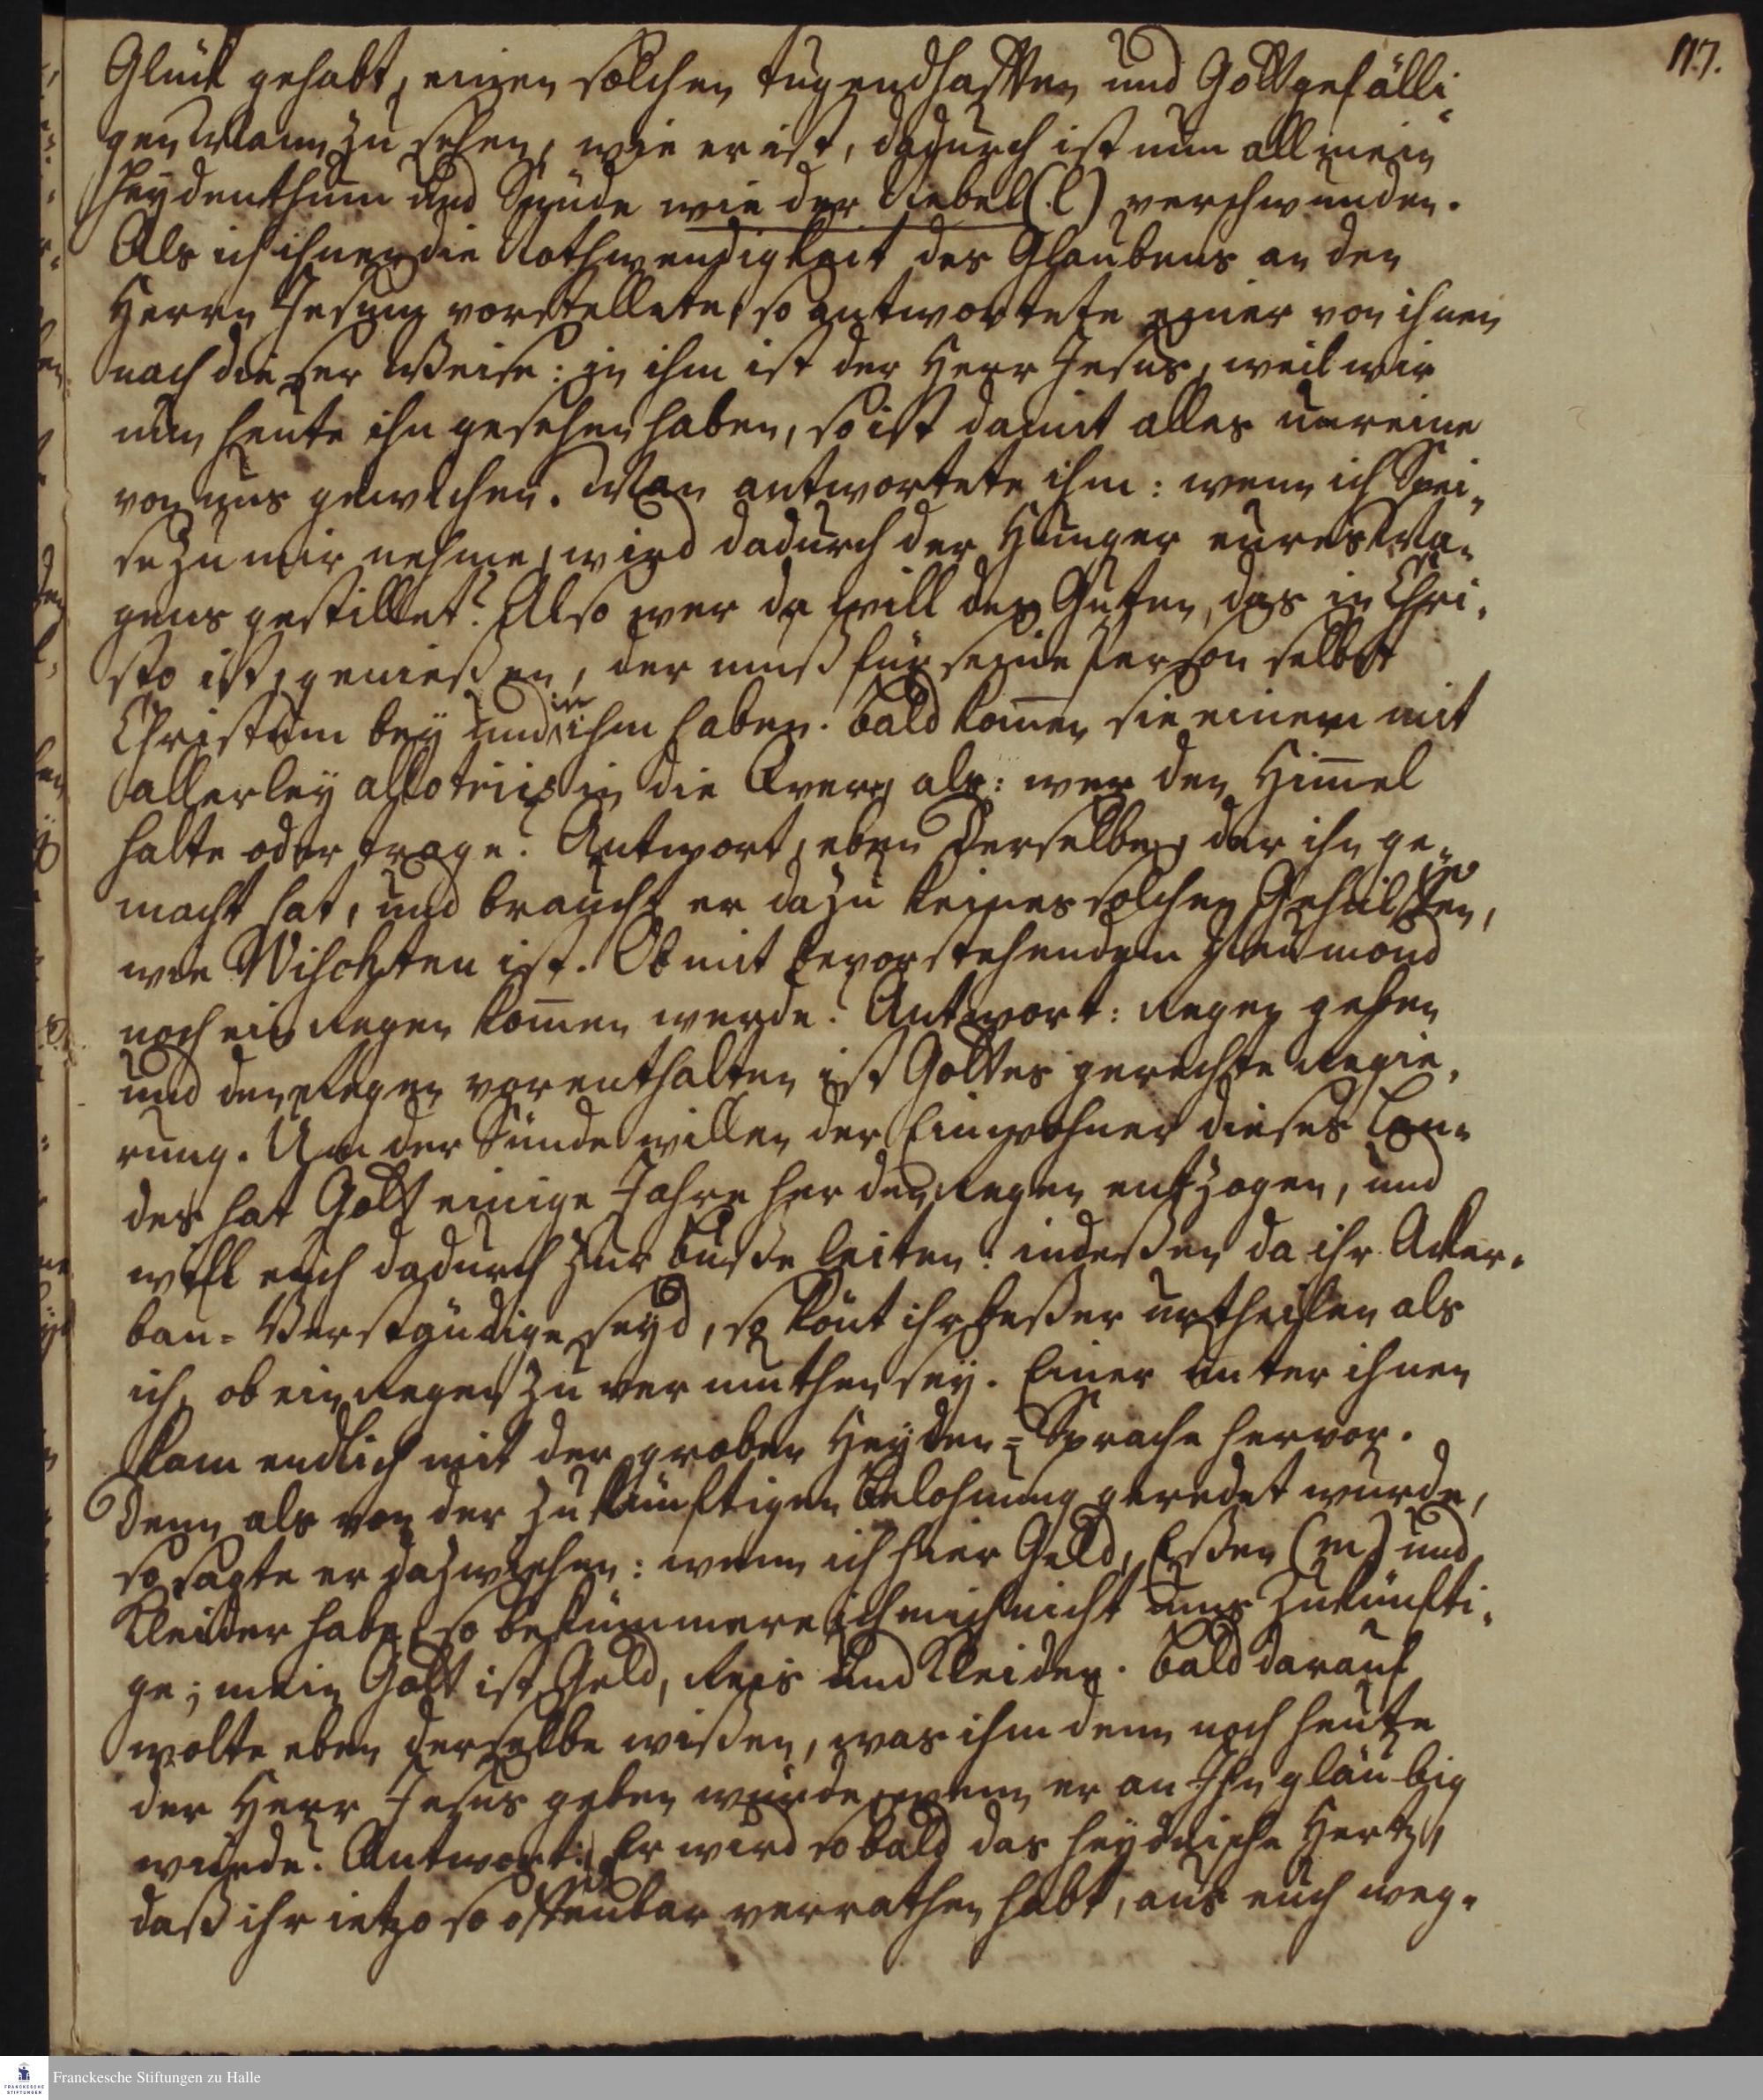 117.
Glück gehabt, einen solchen tugendhafften und Gottgefälli-
gen Mann zu sehen, wie er ist, dadurch ist nun all mein
Heydenthum und Sünde wie der Nebel (l) verschwunden.
Als ich ihnen die Nothwendigkeit des Glaubens an den
Herrn Jesum vorstellete, so antwortete einer von ihnen
nach dieser Weise: in ihm ist der Herr Jesus, weil wir
nun heute ihn gesehen haben, so ist damit alles unreine
von uns gewichen. Man antwortete ihm: wenn ich Spei-
se zu mir nehme, wird dadurch der Hunger eures Ma-
gens gestillet? Also wer da will des Guten, das in Chri-
sto ist, genießen, der muß für seine Person selbst
Christum bey und in ihm haben. Bald kom̄en sie einem mit
allerley allotriis in die Qver, als: wer den Him̄el
halte oder trage? Antwort, eben Derselbe, der ihn ge-
macht hat, und braucht er dazu keines solchen Gehülffen,
wie Wischtnu ist. Ob mit bevorstehendem Neumond
noch ein Regen kom̄en werde? Antwort: Regen geben
und den Regen vorenthalten ist Gottes gerechte Regie-
rung. Um der Sünde willen der Einwohner dieses Lan-
des hat Gott einige Jahre her den Regen entzogen, und
will euch dadurch zur Buße leiten: indeßen da ihr Acker-
bau-Verständige seyd, so kön̄t ihr beßer urtheilen als
ich, ob ein Regen zu vermuthen sey. Einer unter ihnen
kam endlich mit der groben Heyden-Sprache hervor.
Denn als von der zukünftigen Belohnung geredet wurde,
so sagte er dazwischen: wenn ich hier Geld, Eßen (m) und
Kleider habe, so bekümmere ich mich nicht ums zukünfti-
ge; mein Gott ist Geld, Reis und Kleider. Bald darauf
wolte eben derselbe wißen, was ihm denn noch heute
der Herr Jesus geben würde, wenn er an Ihn gläubig
würde? Antwort: Er wird so bald das heydnische Hertz,
daß ihr ietzo so offenbar verrathen habt, aus euch weg-
Franckesche Stiftungen zu Halle
FRANCKESCHE
STIFTUNGEN